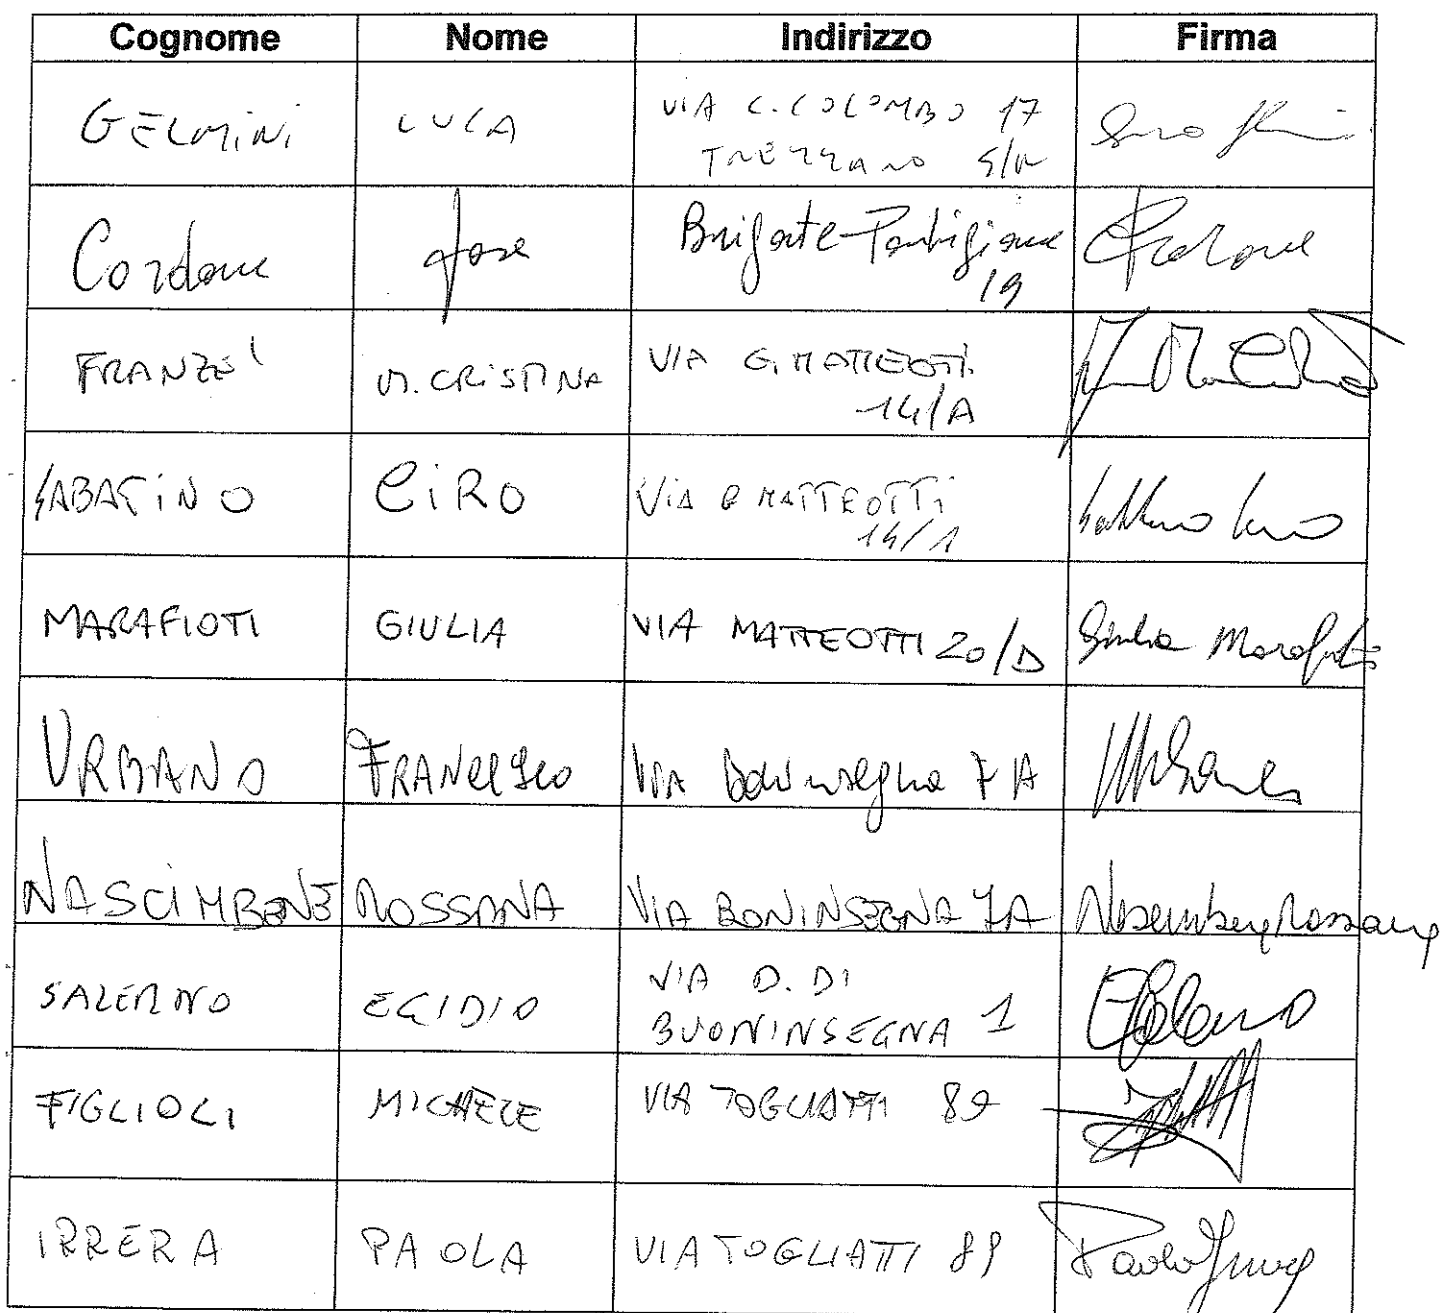 Cognome Nome Indirizzo Firma
GELMINI LUCA VIA C. COLOMBO 17
TREZZANO S/N
Cordone Jose Brigate Partigiane
19
FRANZE' M. CRISTINA VIA G. MATTEOTTI
14/A
SABATINO CIRO VIA G MATTEOTTI
14/1
MARAFIOTI GIULIA VIA MATTEOTTI 20/D Giulia Marafioti
URBANO FRANCESCO VIA Boninsegna 7A Urbano
NASCIMBENE ROSSANA VIA BONINSEGNA 7A Nascimbene Rossana
SALERNO EGIDIO VIA D. DI
BUONINSEGNA 1
FIGLIOLI MICHELE VIA TOGLIATTI 89
IRRERA PAOLA VIA TOGLIATTI 89 Paola Irrera